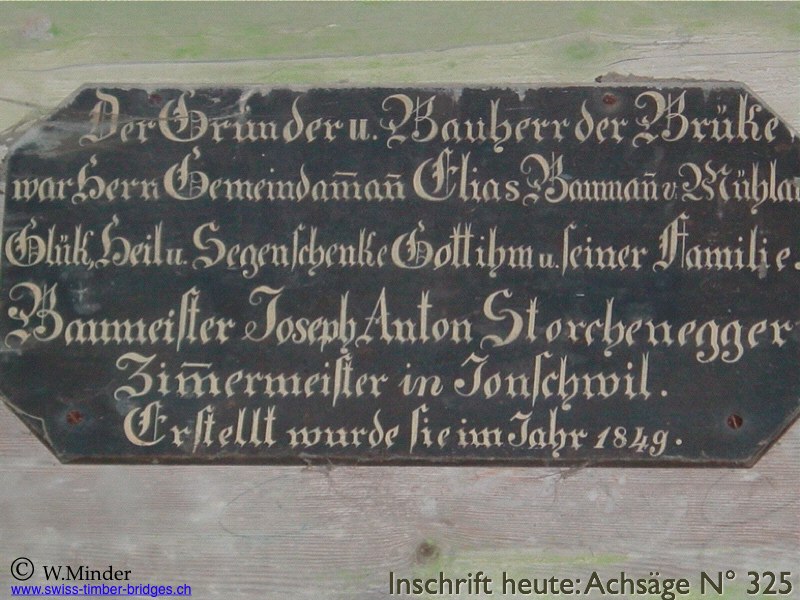 Der Gründer u. Bauherr der Brüke,
war Herr Gemeindam̄añ Elias Baumañ v. Mühlau
Glük, Heil u. Segen schenke Gott ihm u. seiner Familie.
Baumeister Joseph Anton Storchenegger
Zim̄ermeister in Jonschwil.
Erstellt wurde sie im Jahr 1849.
© W.Minder
www.swiss-timber-bridges.ch
Inschrift heute: Achsäge N° 325